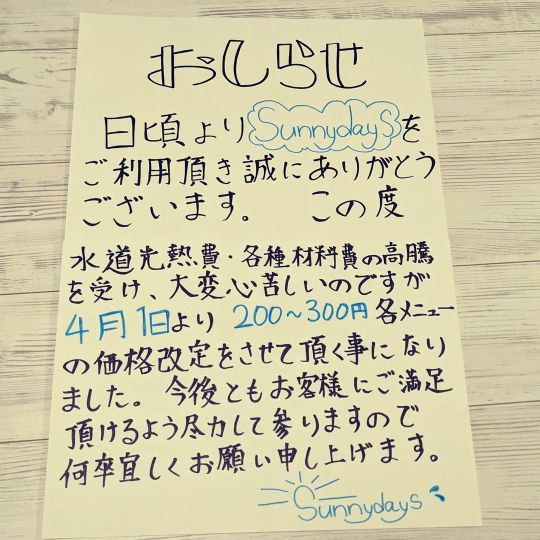 おしらせ
日頃より Sunnydays を
ご利用頂き誠にありがとう
ございます。 この度
水道光熱費・各種材料費の高騰
を受け、大変心苦しいのですが
4月1日より 200〜300円 各メニュー
の価格改定をさせて頂く事になり
ました。今後ともお客様にご満足
頂けるよう尽力して参りますので
何卒宜しくお願い申し上げます。
Sunnydays